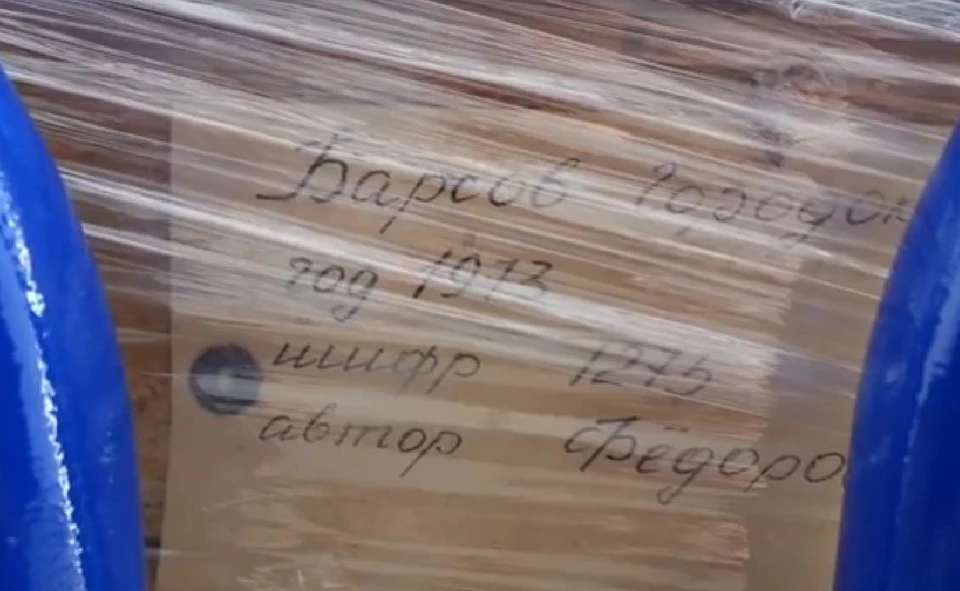 Барсов городок
год 1973
шифр 1275
автор Фёдоро